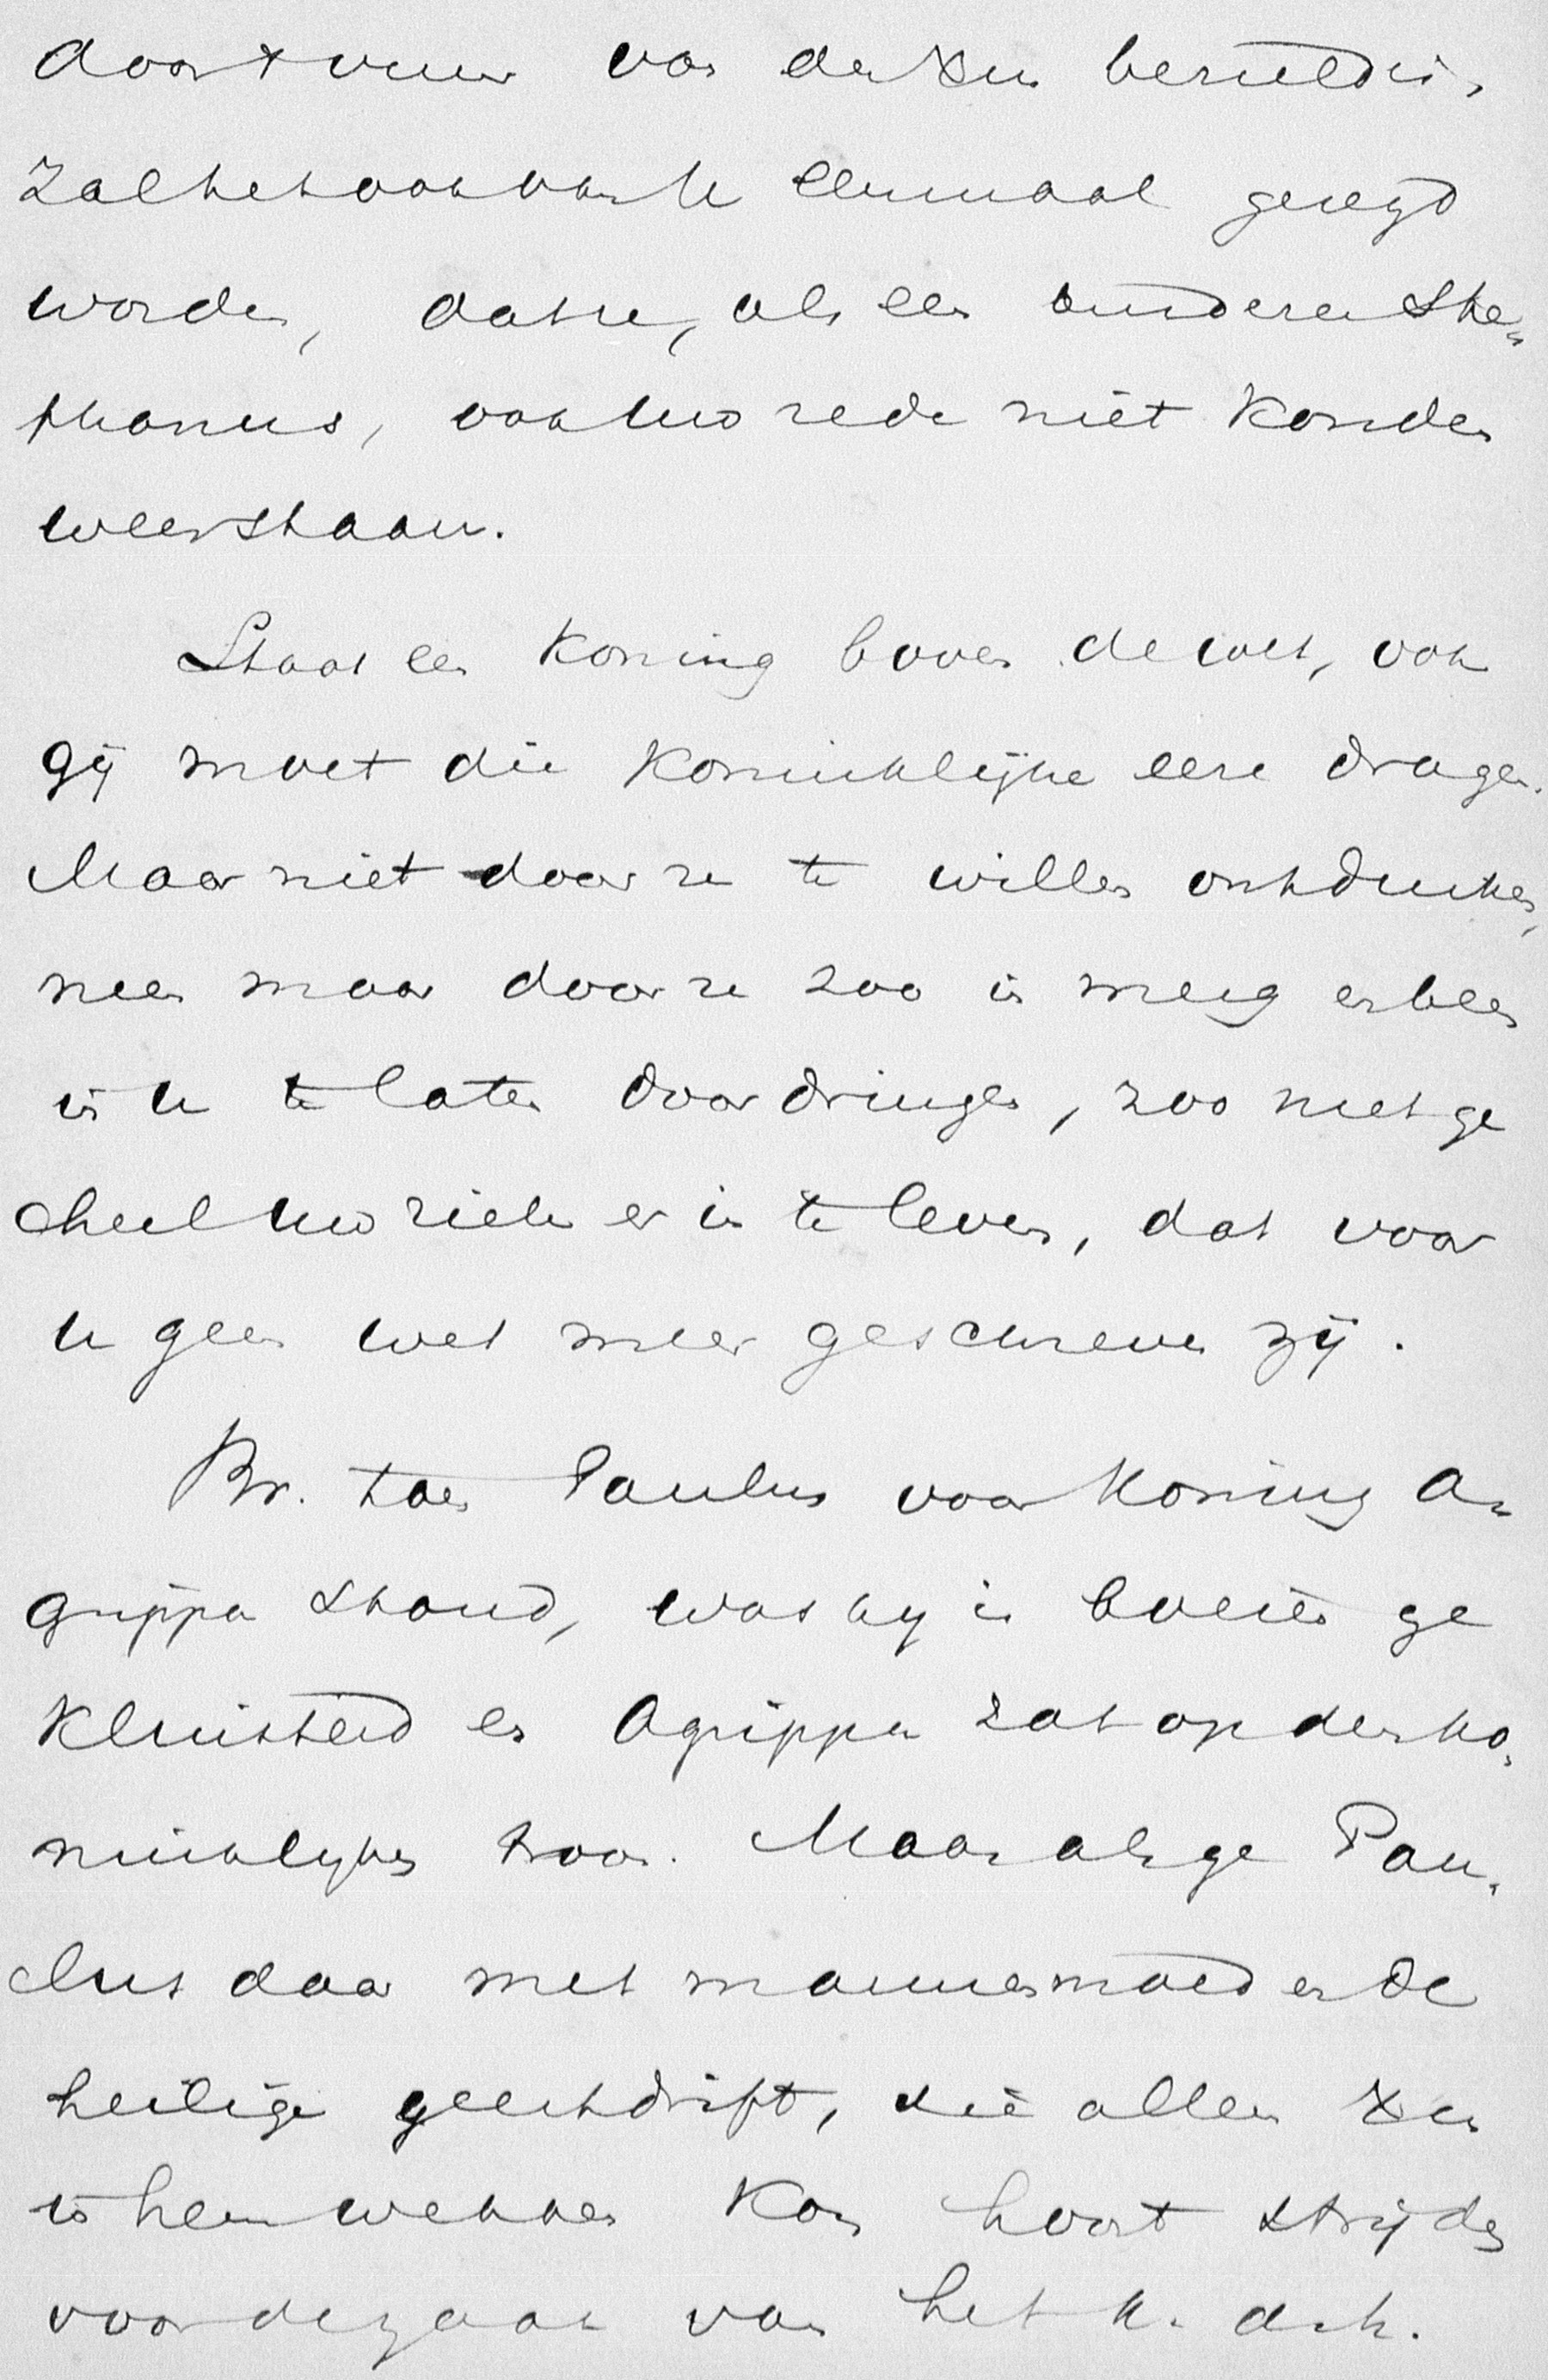 door t vuur van den Xen bezield is,
zal het ook van U eenmaal gezegd
worden, dat ze, als een anderen Ste„
phanus, ook uw rede niet konden
weerstaan.
Staat een Koning boven de wet, ook
gij moet die Koninklijke eere dragen.
Maar niet door ze te willen ontduiken,
neen maar door ze zoo in merg en been
in U te laten doordringen, zoo met ge
heel uw ziele er in te leven, dat voor
U geen wet meer geschreven zij.
Br. toen Paulus voor Koning A„
grippa stond, was hij in boeien ge
kluisterd en Agrippa zat op den ko„
ninklijken troon. Maar als ge Pau„
lus daar met mannenmoed en de
heilige geestdrift, die alleen Xus
in hem wekken kon hoort strijden
voor de zaak van het K. des H.